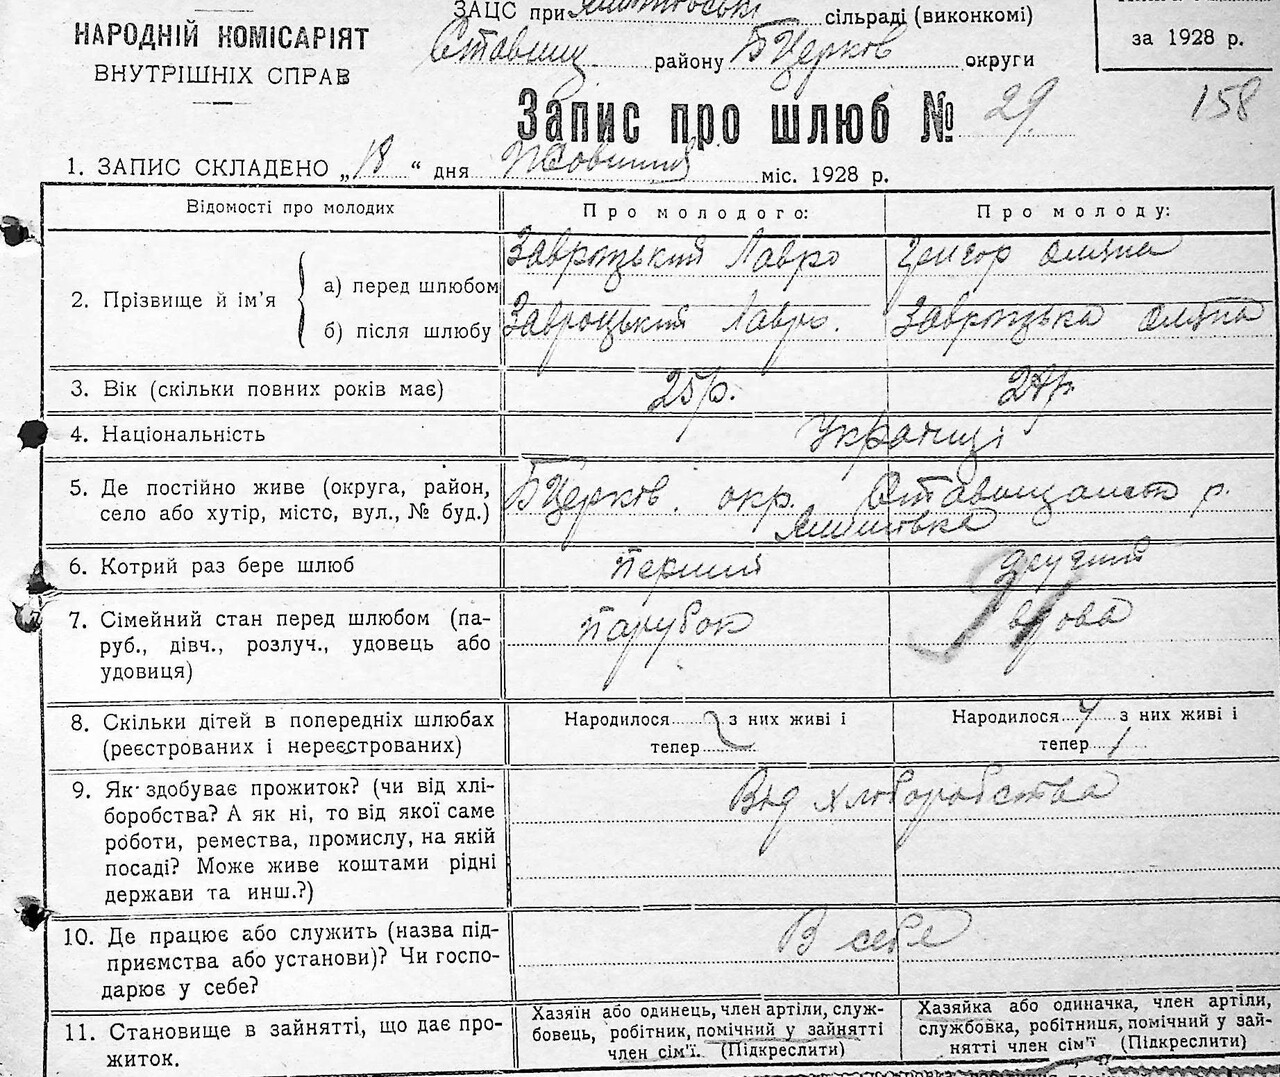 ЗАЦС при сільраді (виконкомі)
НАРОДНІЙ КОМІСАРІЯТ
ВНУТРІШНІХ СПРАВ
Ставищ. району БЦерков округи
за 1928 р.
Запис про шлюб № 29.
158
1. ЗАПИС СКЛАДЕНО „18“ дня Жовтня міс. 1928 р.
Відомості про молодих
Про молодого:
Про молоду:
2. Прізвище й ім'я
а) перед шлюбом
Завроцький Лавро
Оляна
б) після шлюбу
Завроцький Лавро.
Завроцька Оляна
3. Вік (скільки повних років має)
25р.
27р.
4. Національність
Українці
5. Де постійно живе (округа, район,
село або хутір, місто, вул., № буд.)
БЦерков. окр. Ставищанськ р.
6. Котрий раз бере шлюб
перший
другий
7. Сімейний стан перед шлюбом (па-
руб., дівч., розлуч., удовець або
удовиця)
парубок
вдова
8. Скільки дітей в попередніх шлюбах
(реєстрованих і нереєстрованих)
Народилося з них живі і
тепер
Народилося 4 з них живі і
тепер 1
9. Як здобуває прожиток? (чи від хлі-
боробства? А як ні, то від якої саме
роботи, ремества, промислу, на якій
посаді? Може живе коштами рідні
держави та инш.?)
Від хліборобства
10. Де працює або служить (назва під-
приємства або установи)? Чи госпо-
дарює у себе?
В себе
11. Становище в зайнятті, що дає про-
житок.
Хазяїн або одинець, член артілі, служ-
бовець, робітник, помічний у зайнятті
член сім'ї. (Підкреслити)
Хазяйка або одиначка, член артілі,
службовка, робітниця, помічний у зай-
нятті член сім'ї (Підкреслити)